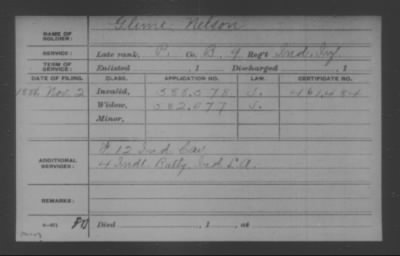 Glime Nelson
NAME OF SOLDIER:
SERVICE: Late rank, P. Co. B. 9 Reg't Ind. Inf
TERM OF SERVICE: Enlisted , 1 Discharged , 1
DATE OF FILING. CLASS. APPLICATION NO. LAW. CERTIFICATE NO.
1886 Nov. 2 Invalid, 588.078 461484
Widow, 582.077
Minor,
ADDITIONAL SERVICES: F 12 Ind Cav
4 Indt. Batty. Ind L.A.
REMARKS:
Died , 1 , at